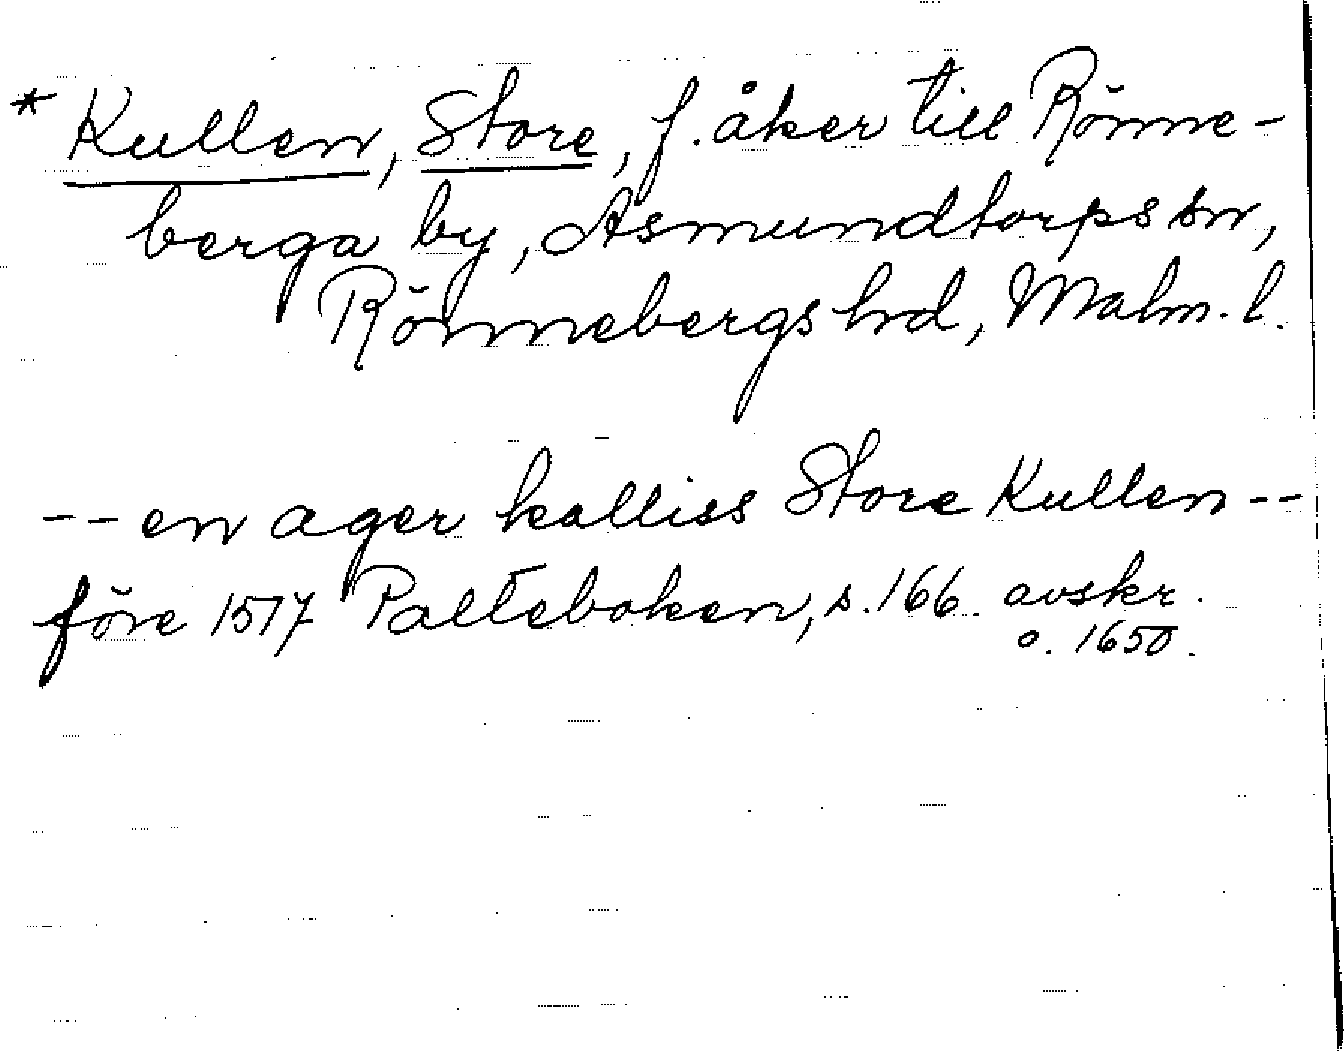 * Kullen, Store, f. åker till Rönne-
berga by, Asmundtorps sn,
Rönnebergs hd, Malm. l.
-- en ager kalliss Store Kullen --
före 1517 Palteboken, s. 166 avskr.
o. 1650.